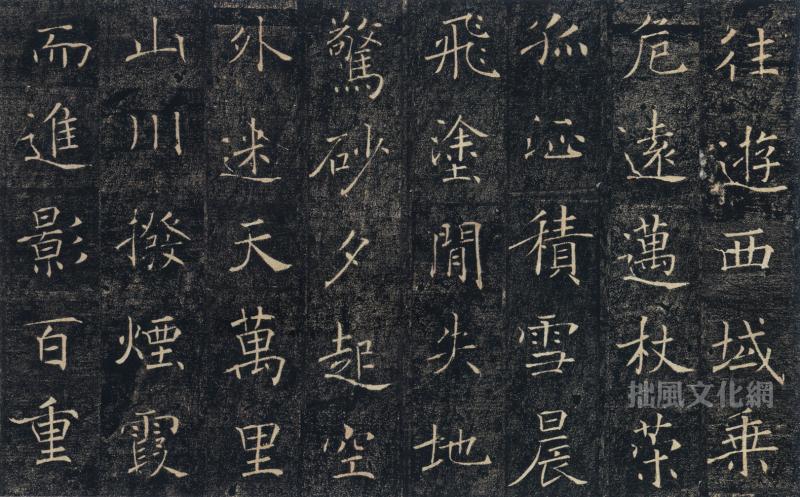 往遊西域乘
危遠邁杖策
孤征積雪晨
飛塗閒失地
驚砂夕起空
外迷天萬里
山川撥煙霞
而進影百重
拙風文化網